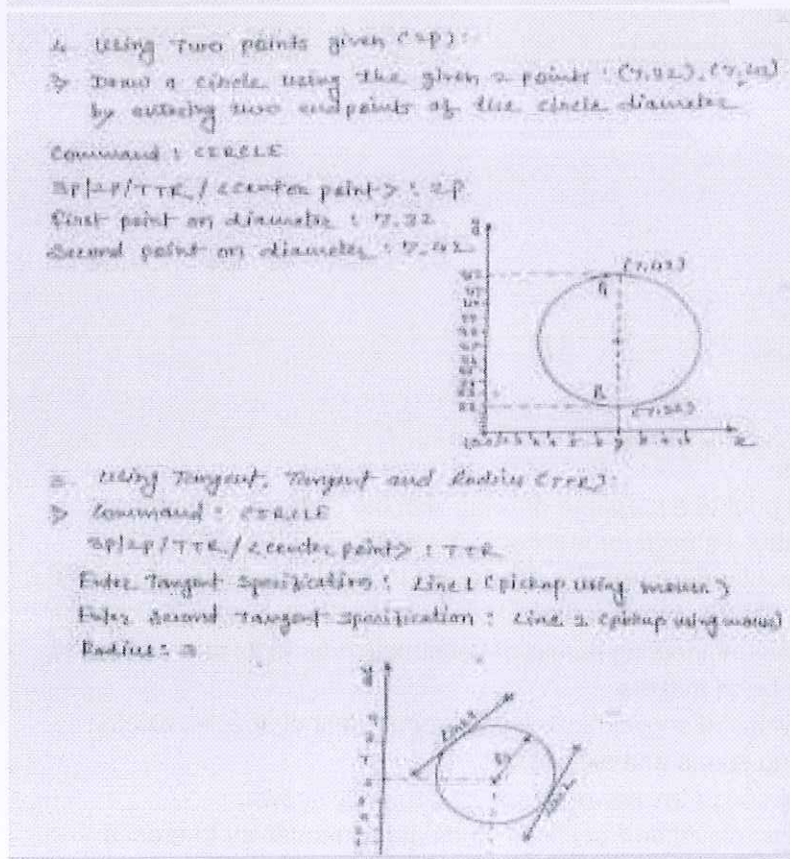 4. Using Two points given (2P):
→ Draw a circle using the given 2 points : (7,32), (7,42)
by entering two endpoints of the circle diameter
Command : CIRCLE
3P/2P/TTR/<center point> : 2P
First point on diameter : 7,32
Second point on diameter : 7,42
y
(7,42)
(7,32)
x
Using Tangent, Tangent and Radius (TTR):
→ Command : CIRCLE
3P/2P/TTR/<center point> : TTR
Enter Tangent Specification : Line 1 (pickup using mouse)
Enter Second Tangent Specification : Line 2 (pickup using mouse)
Radius : 3
Line 1
Line 2